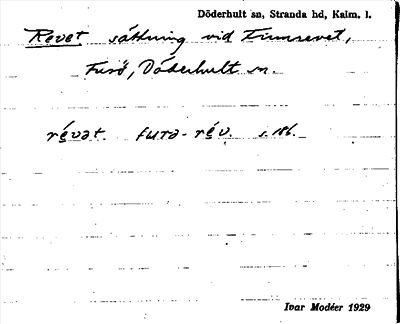 Döderhult sn, Stranda hd, Kalm. l.
Revet sättning vid Finnrevet,
Furö, Döderhult sn.
révat. furə-rév. s. 186.
Ivar Modéer 1929